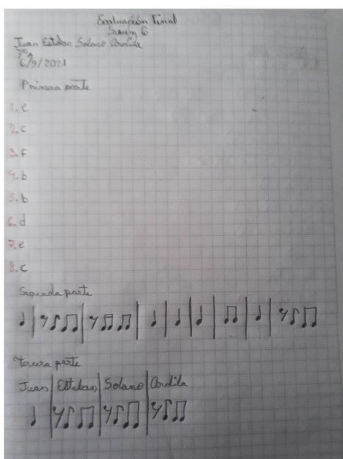 Evaluación final
Juan Esteban Solano Ardila
6/9/2021
Primera parte
1. e
2. c
3. f
4. b
5. b
6. d
7. e
8. c
Segunda parte
Tercera parte
Juan Esteban Solano Ardila